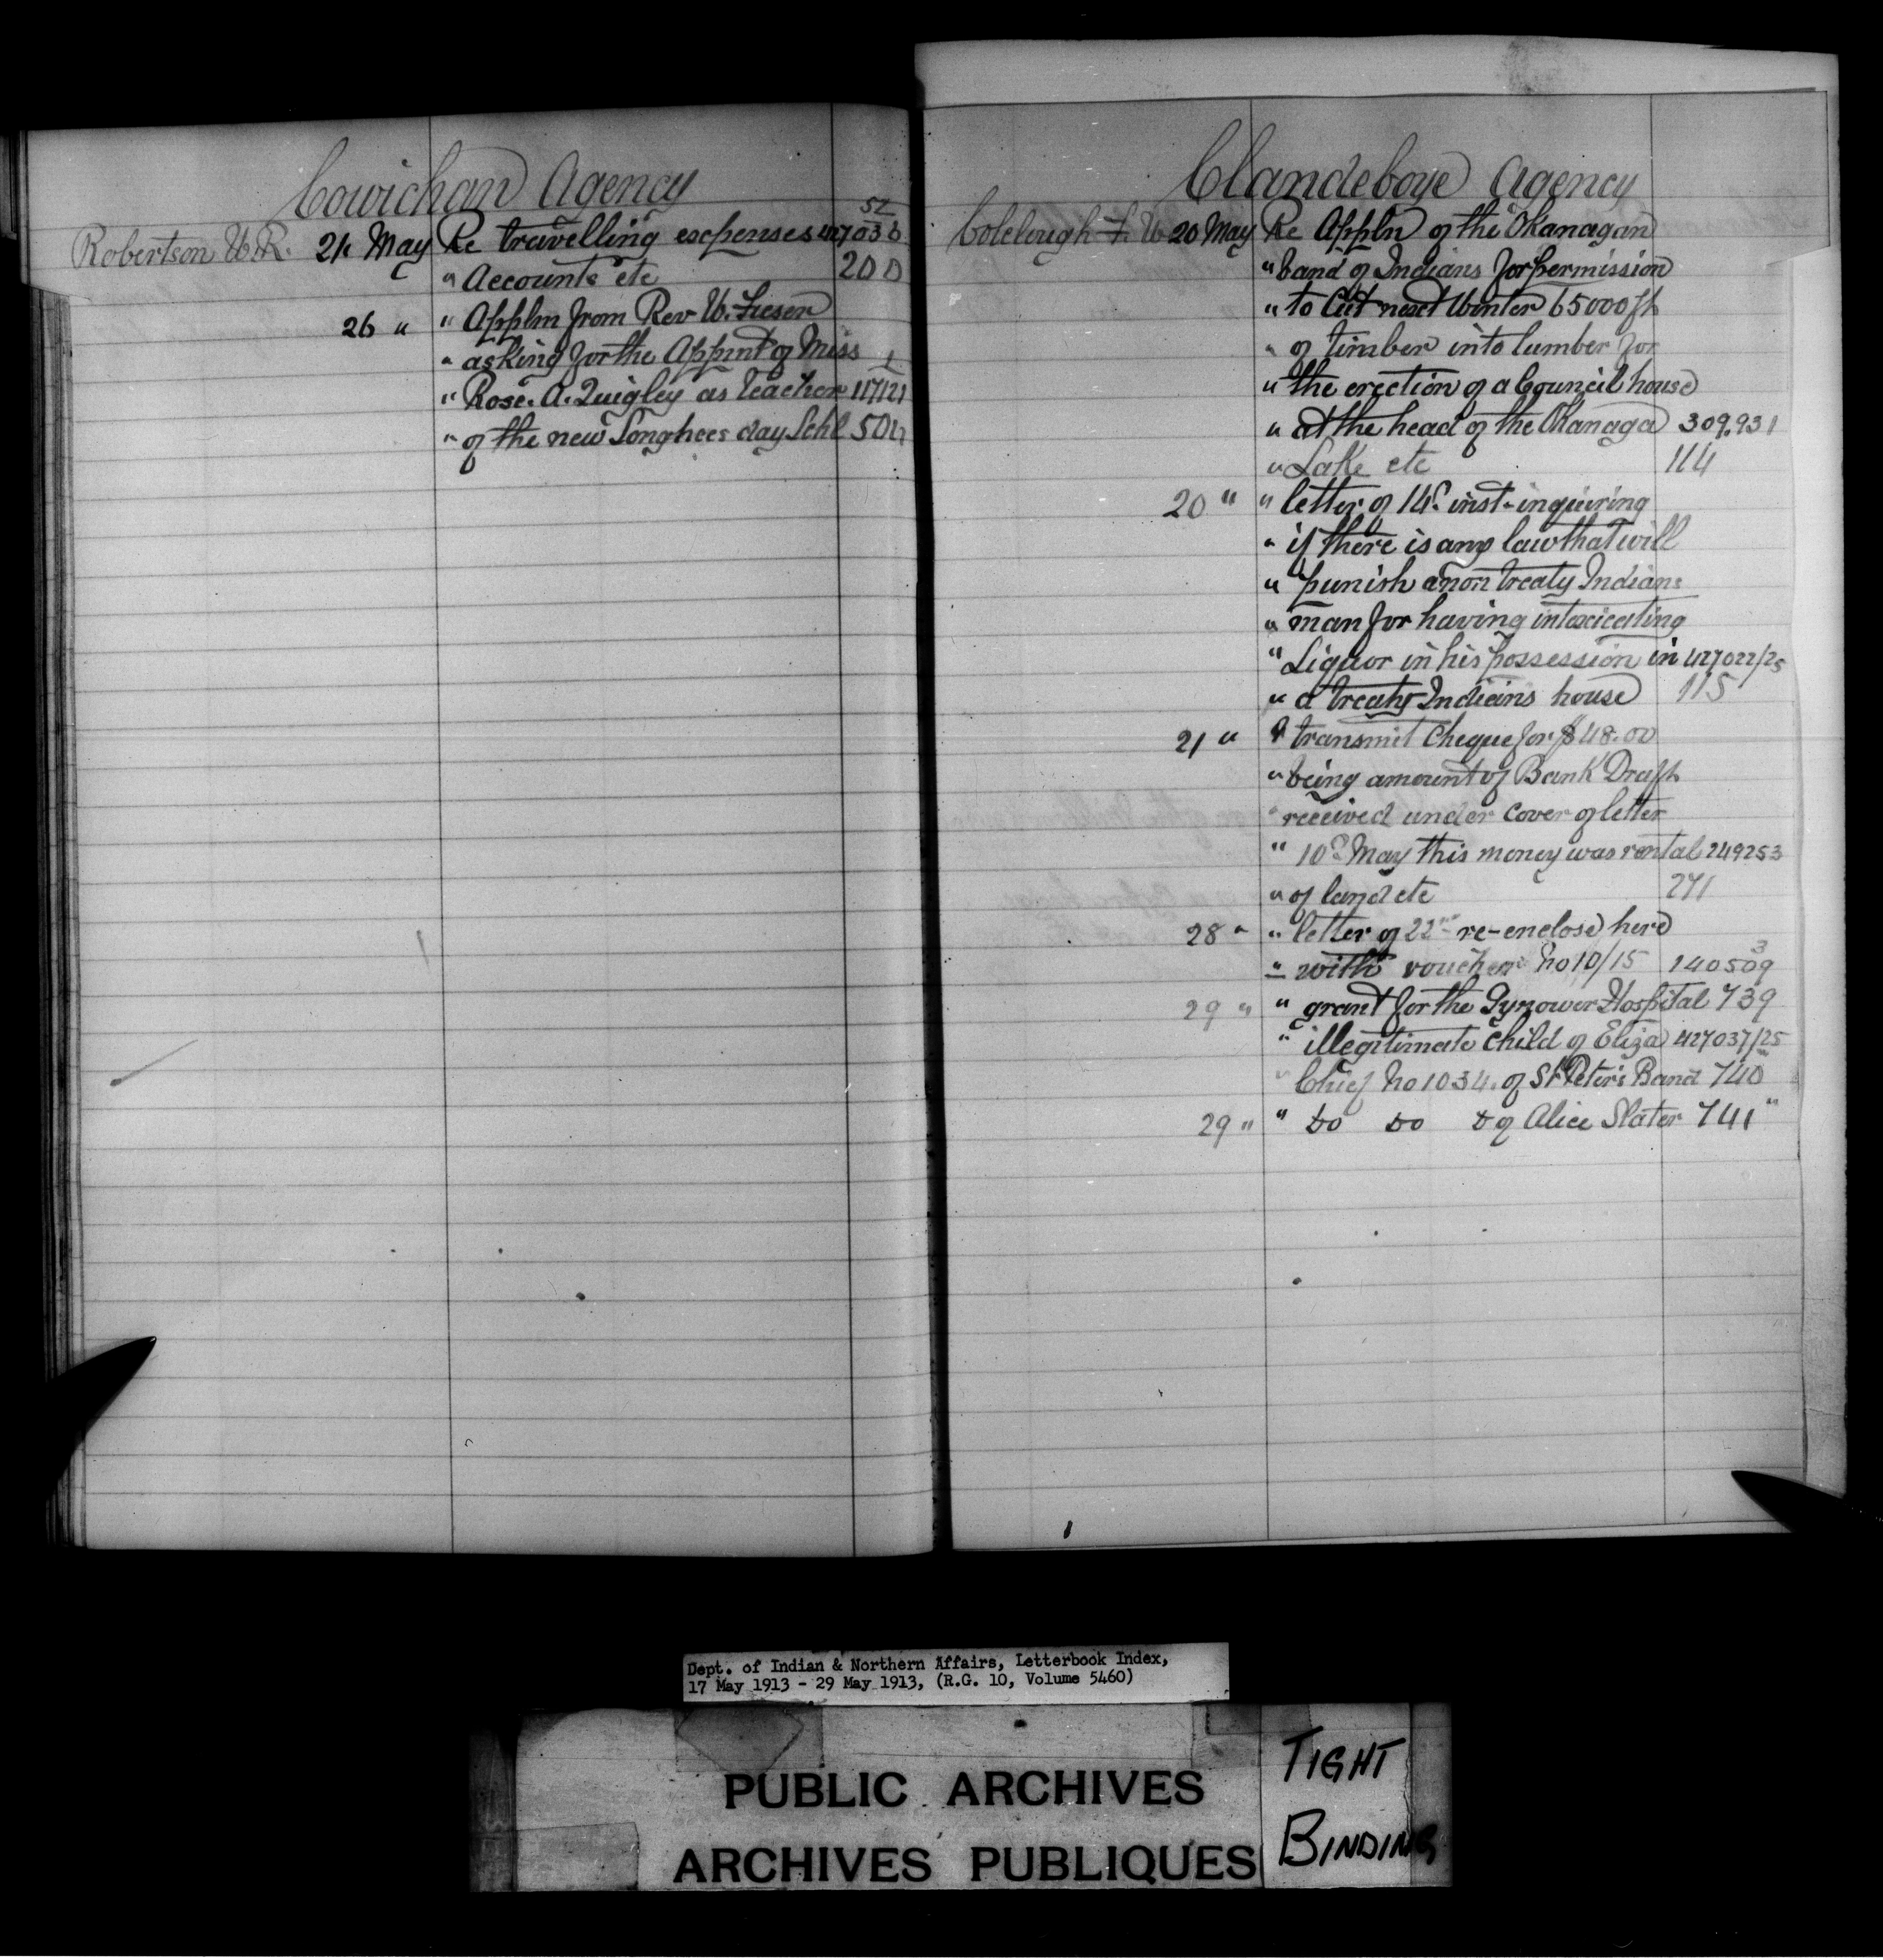 Cowichan Agency
Robertson W.R. 21 May Re travelling expenses 427036/52
" Accounts etc 200
26 " " Applm from Rev W.
" asking for the Appmt of Miss
" Rose. A. Quigley as teacher 117121/1
" of the new Songhees day Schl
Clandeboye Agency
Colclough F. W 20 May Re Appln of the Okanagan
" band of Indians for permission
" to Cut next Winter 65000 ft
" of timber into lumber for
" the erection of a Council house
" at the head of the Okanaga 309.931
" Lake etc 114
20 " " letter of 14th inst- inquiring
" if there is any law that will
" punish a non treaty Indians
" man for having intoxicating
" Liquor in his possession in 427022/25
" a treaty Indians house 115
21 " I transmit Cheque for $48.00
" being amount of Bank Draft
" received under cover of letter
" 10th May this money was rental 249253
" of land etc 271
28 " " letter of 22nd re-enclose here
" with voucher No 10/15 140509/3
29 " " grant for the Dynower Hospital 739
" illegitimate child of Eliza 427037/25
" Chief No 1034. of St Peter's Band 740 "
29 " " Do Do Do of Alice Slater 741 "
Dept. of Indian & Northern Affairs, Letterbook Index,
17 May 1913 - 29 May 1913, (R.G. 10, Volume 5460)
PUBLIC ARCHIVES
ARCHIVES PUBLIQUES
TIGHT
BINDING